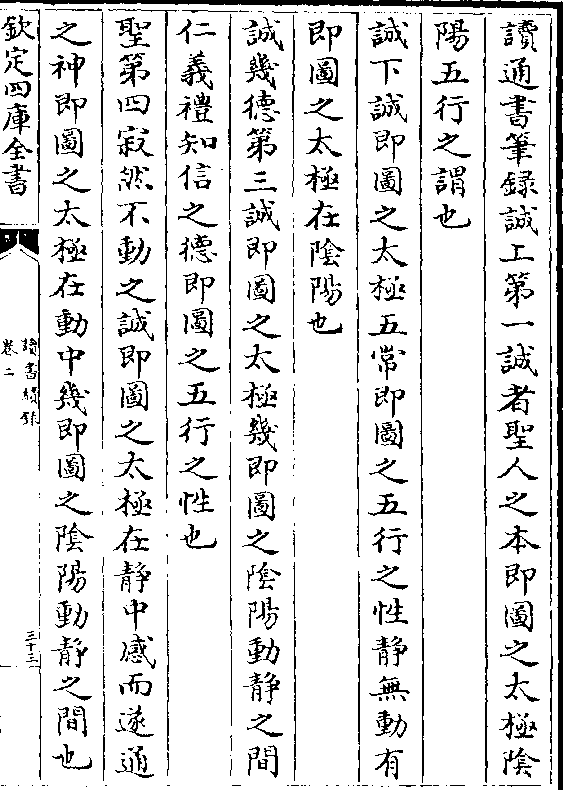 讀通書筆録誠上第一誠者聖人之本即圖之太極陰
陽五行之謂也
誠下誠即圖之太極五常即圖之五行之性静無動有
即圖之太極在陰陽也
誠幾德第三誠即圖之太極幾即圖之陰陽動静之間
仁義禮知信之德即圖之五行之性也
聖第四寂然不動之誠即圖之太極在静中感而遂通
之神即圖之太極在動中幾即圖之陰陽動静之間也
欽定四庫全書
讀書續録
卷二
三十三